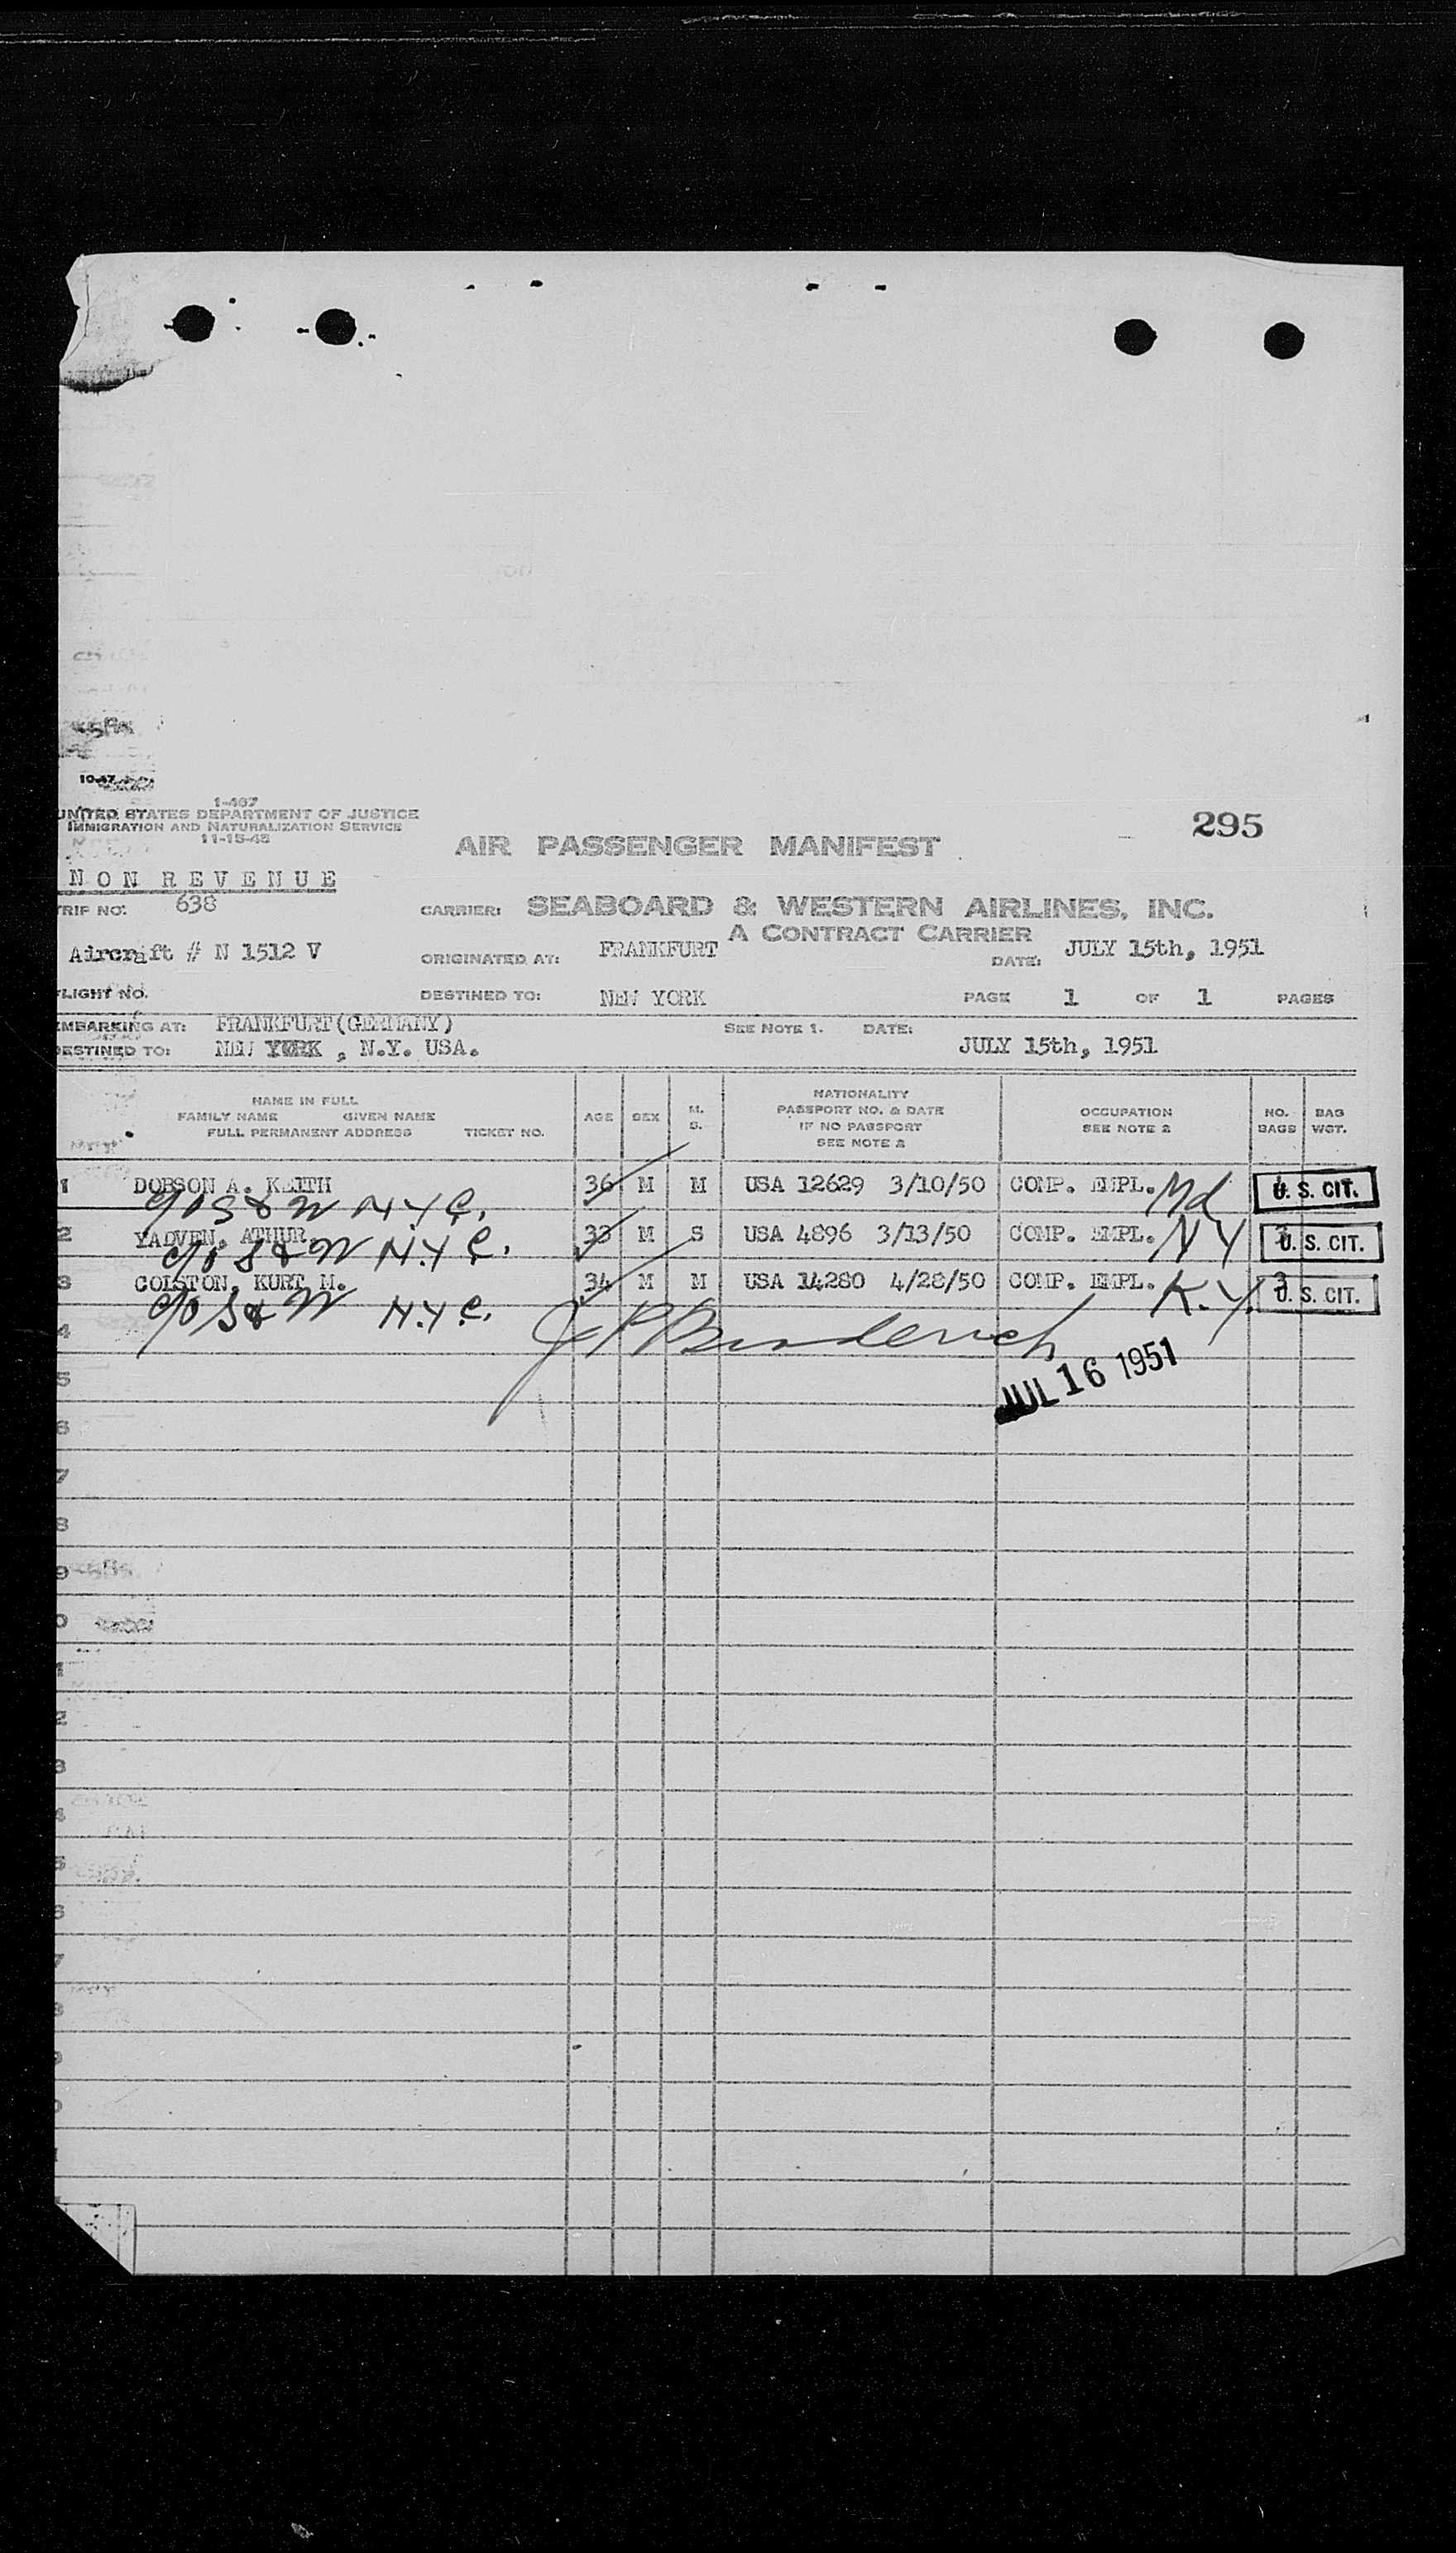 10-47
I-467
UNITED STATES DEPARTMENT OF JUSTICE
IMMIGRATION AND NATURALIZATION SERVICE
11-15-45
295
AIR PASSENGER MANIFEST
NON REVENUE
TRIP NO: 638
CARRIER: SEABOARD & WESTERN AIRLINES, INC.
A CONTRACT CARRIER
Aircraft # N 1512 V
ORIGINATED AT: FRANKFURT
DATE: JULY 15th, 1951
FLIGHT NO.
DESTINED TO: NEW YORK
PAGE 1 OF 1 PAGES
EMBARKING AT: FRANKFURT(GERMANY)
SEE NOTE 1. DATE:
DESTINED TO: NEW YORK , N.Y. USA.
JULY 15th, 1951
NAME IN FULL
FAMILY NAME GIVEN NAME
FULL PERMANENT ADDRESS TICKET NO.
AGE SEX
M.
S.
NATIONALITY
PASSPORT NO. & DATE
IF NO PASSPORT
SEE NOTE 2
OCCUPATION
SEE NOTE 2
NO.
BAGS
BAG
WGT.
1 DOBSON A. KEITH 36 M M USA 12629 3/10/50 COMP. EMPL. Md U. S. CIT.
c/o S & W N.Y.C.
2 YADVEN, ATHUR 33 M S USA 4896 3/13/50 COMP. EMPL. NY U. S. CIT.
c/o S & W N.Y.C.
3 COLSTON, KURT M. 34 M M USA 14280 4/28/50 COMP. EMPL. K.Y. 3 U. S. CIT.
c/o S & W N.Y.C.
4
JUL 16 1951
5
6
7
8
9
0
1
2
3
4
5
6
7
8
9
0
1